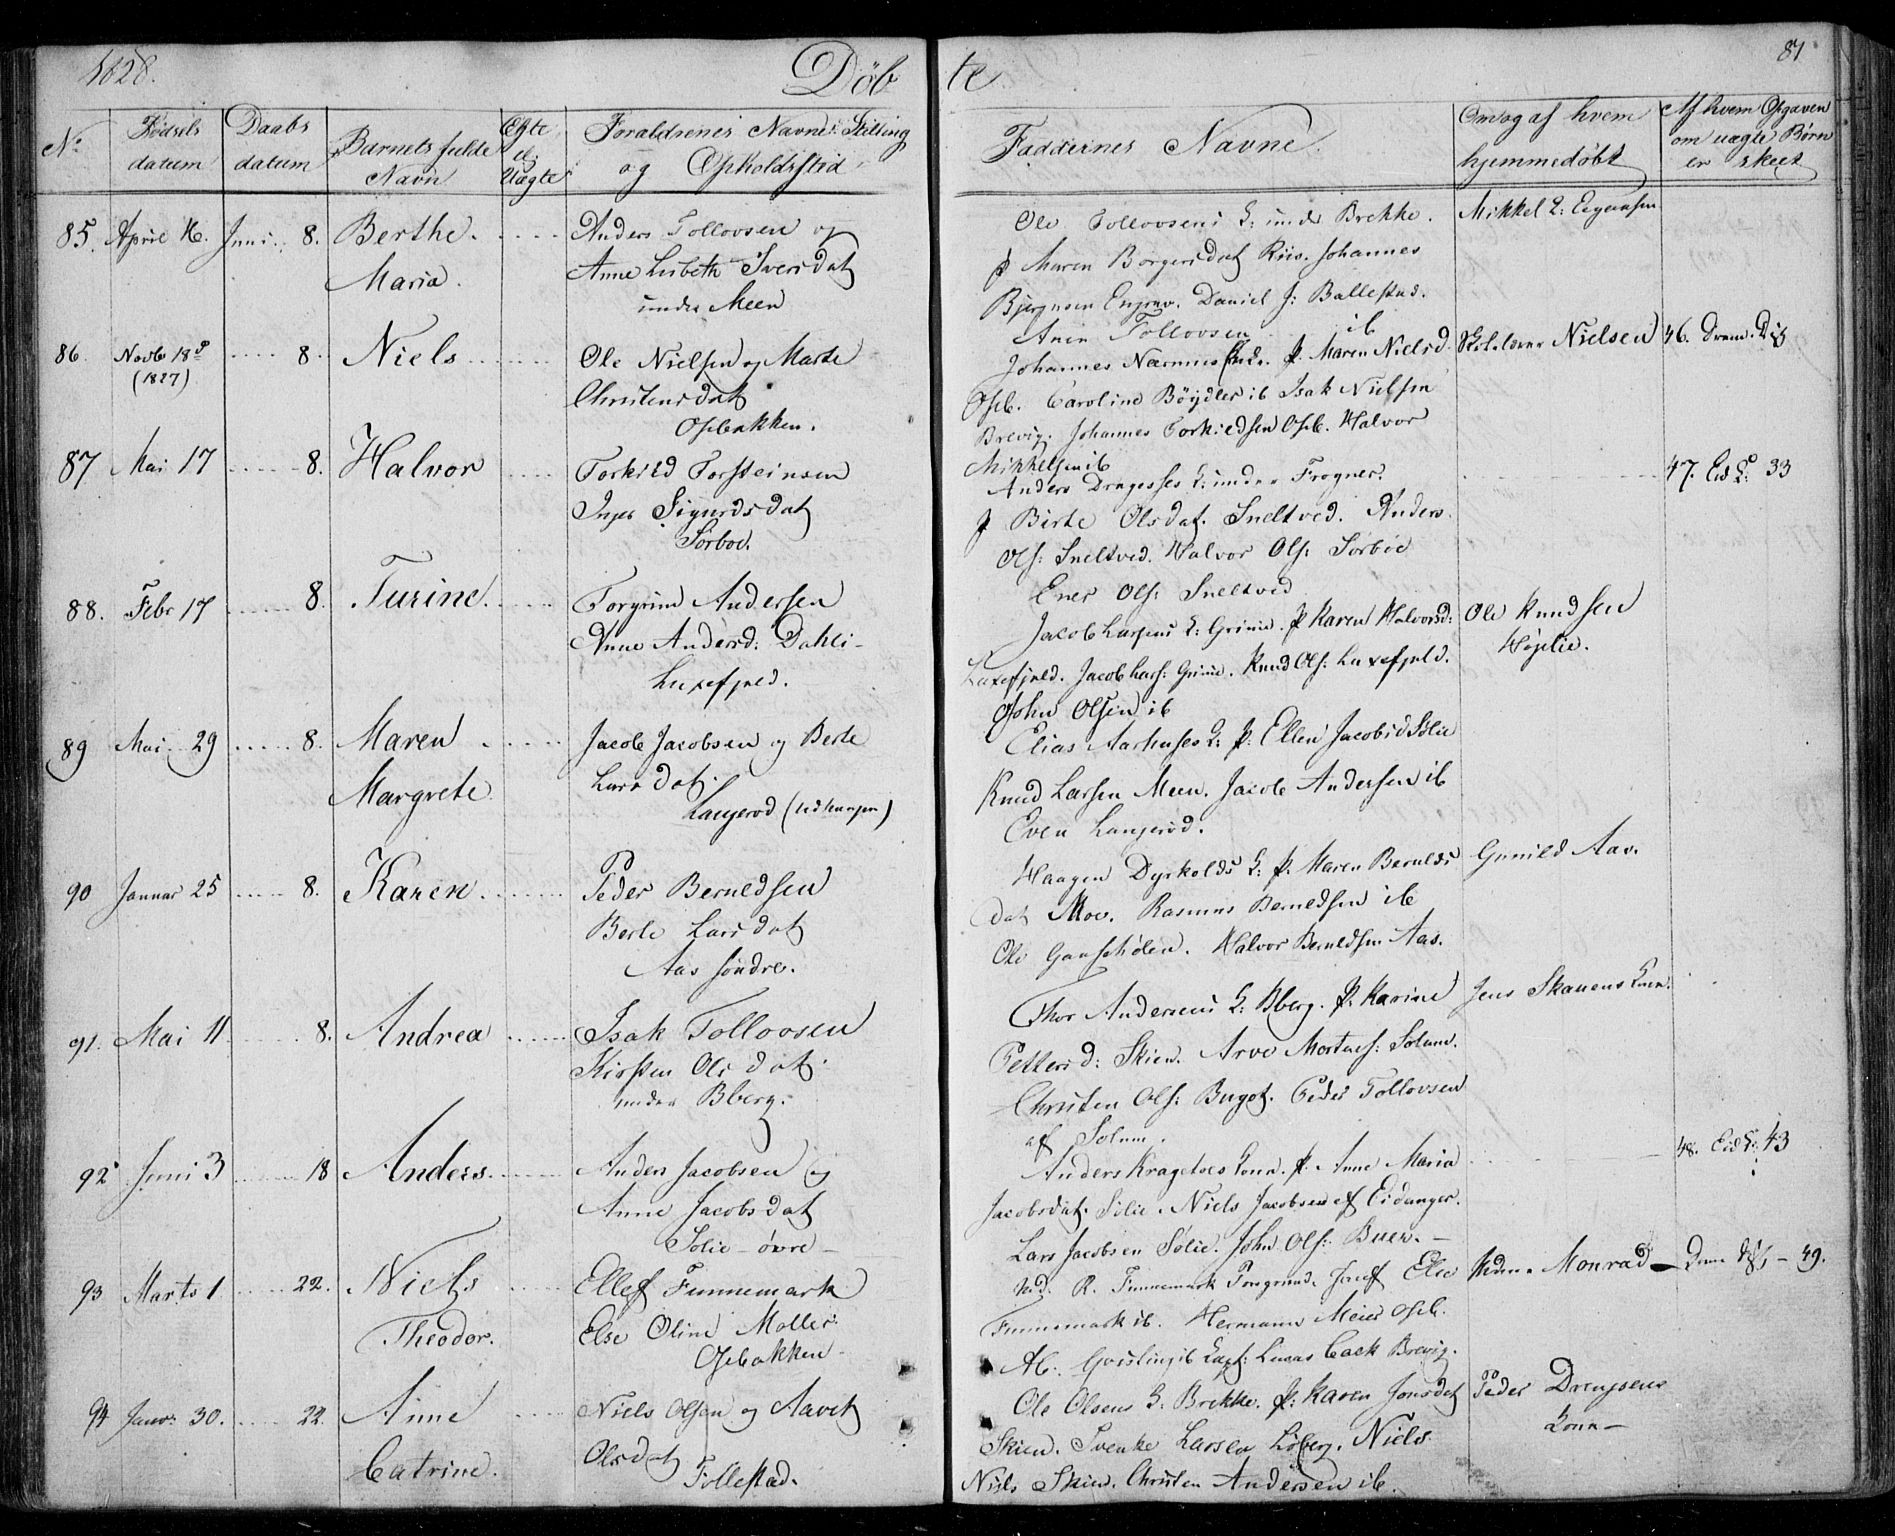 1828. Døb te 81
No Fødsels datum Daabs datum Barnets fulde Navn Egte el. Uægte Forældrenes Navne Stilling og Opholdssted
Faddernes Navne. Om og af hvem hjemmedøbt Af hvem Opgaven om uægte Børn er skeet
85. April 16. Juni 8. Berthe Maria.
Anders Tollovsen og
Anne Lisbeth Iversdat
under Meen
Ole Tollovsens K: under Brekke.
P Maren Borgersdat Riis. Johannes
Bjørnsen Enger. Daniel J: Ballestad.
Tollovsen ib
Mikkel
86. Novb 18de (1827) 8. Niels
Ole Nielsen og Marte
Christensdat
Osebakken.
Johannes P. Maren Nielsd.
Oseb. Caroline Bøydler ib Isak Nielsen
Brevig. Johannes Torkildsen Oseb. Halvor
Mikkelsen ib
Skolelærer Nielsen
46. Dram. Dis
87 Mai 17 8. Halvor
Torkild Torsteinsen
Inger Sigurdsdat
Sørboe.
Anders K: under Frogner.
P Birte Olsdat. Sneltved. Anders
Ols: Sneltved. Halvor Ols: Sørbøe
Ener Ols: Sneltved
47. Eid 33
88. Febr 17 8. Turine.
Torgrim Andersen
Anne Andersd: Dahli-
Luxefjeld.
Jacob Larsens K: Grinie. P Karen Halvorsd:
Luxefjeld. Jacob Lars: Grinie. Knud Ols: Luxefjeld.
John Olsen ib
Ole Knudsen
Højelie.
89 Mai 29 8. Maren Margrete
Jacob Jacobsen og Berte
Larsdat.
Langerød
Elias Aarhuses K: P: Ellen Jacobsd Sølie
Knud Larsen Meen. Jacob Andersen ib
Even Langerød.
90 Januar 25 8. Karen.
Peder Berneldsen
Berte Larsdat
Aas søndre.
Haagen Dyrkolds K: P. Maren Bernelds
dat Moe. Rasmus Berneldsen ib
Ole Halvor Berneldsen Aas.
Gunild Aas.
91. Mai 11. 8. Andrea
Isak Tollovsen
Kirsten Olsdat.
under Bberg.
Thor Andersens K: Bberg. P: Karine
Pettersd: Skien. Arve Mortens: Solum.
Christen Ols: Peder Tollovsen
af Solum.
Jens Skauens Kone.
92 Juni 3 18 Anders.
Anders Jacobsen og
Anne Jacobsdat
Sølie - øvre -
Anders Kragetoes Kone. P. Anne Maria
Jacobsdat. Sølie. Niels Jacobsen af Eidanger.
Lars Jacobsen Sølie. John Ols: Buer. -
48. Eid 43
93 Marts 1 22. Niels Theodor.
Ellef Funnemark
Else Oline Møller
Osebakken
R. Funnemark Porsgrund. Else
Funnemark ib. Hermann Meier Oseb.
Ab. ib Capt: Lucas Cack Brevig.
Monrad
49.
94 Januar 30. 22. Anne Catrine.
Niels Olsen og Aavet
Olsdat
Follestad.
Ole Olsens K: Brekke. P: Karen Jonsdat
Skien. Svenke Larsen Løberg. Niels
Niels Skien. Christen Andersen ib.
Peder
Kone -